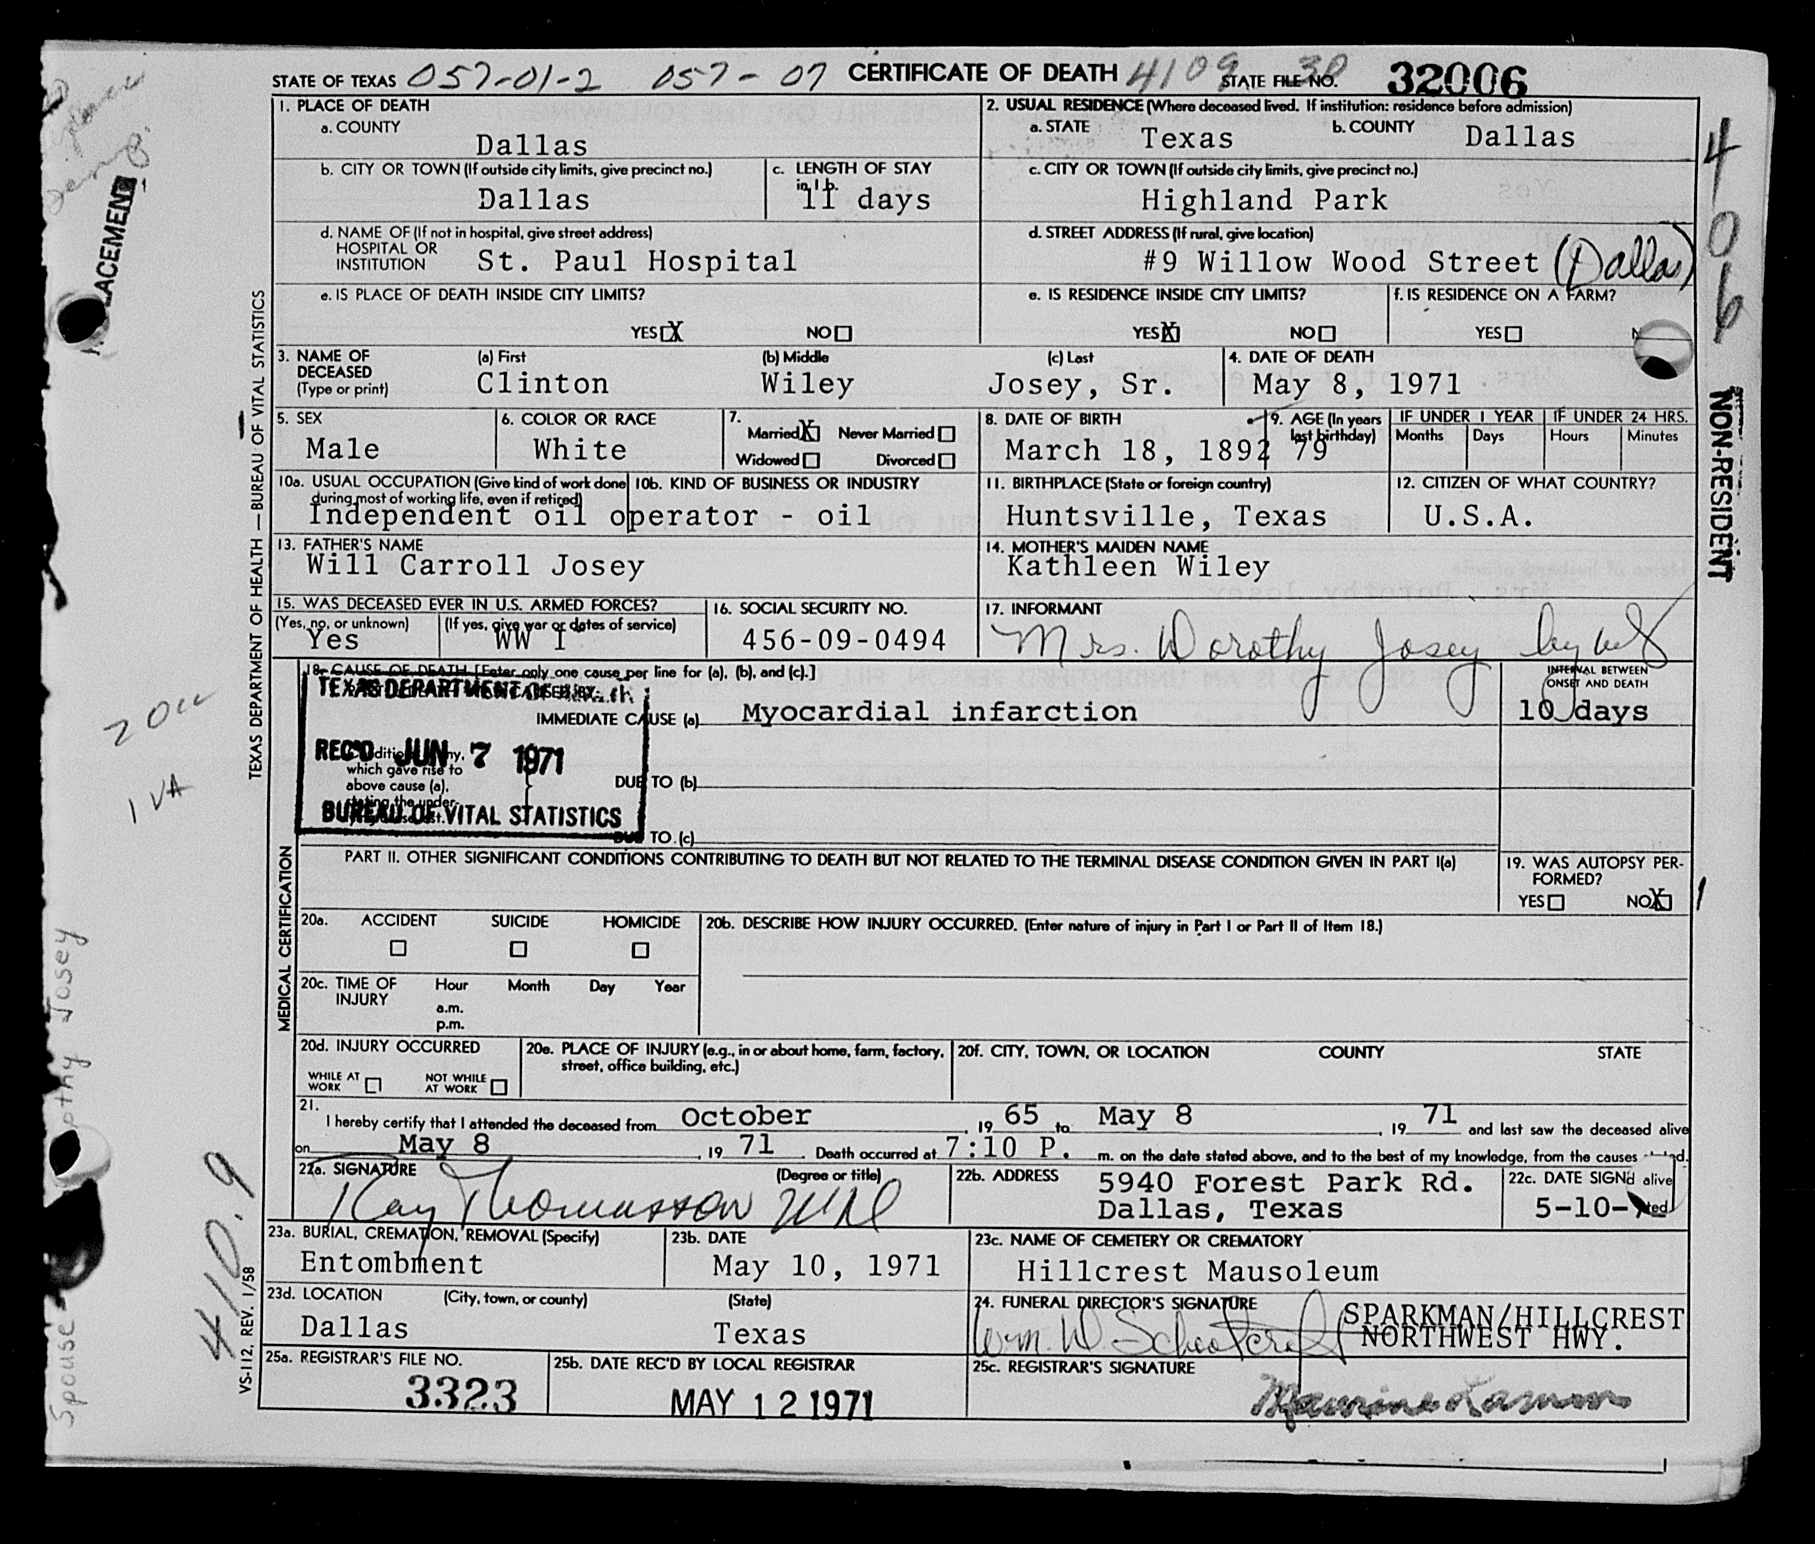 STATE OF TEXAS 057-01-2 057-07 CERTIFICATE OF DEATH 4109 30 STATE FILE NO. 32006
1. PLACE OF DEATH
a. COUNTY
Dallas
2. USUAL RESIDENCE (Where deceased lived. If institution: residence before admission)
a. STATE Texas b. COUNTY Dallas
b. CITY OR TOWN (If outside city limits, give precinct no.)
Dallas
c. LENGTH OF STAY
in 1 b.
11 days
c. CITY OR TOWN (If outside city limits, give precinct no.)
Highland Park
d. NAME OF (If not in hospital, give street address)
HOSPITAL OR
INSTITUTION St. Paul Hospital
d. STREET ADDRESS (If rural, give location)
#9 Willow Wood Street (Dallas)
e. IS PLACE OF DEATH INSIDE CITY LIMITS?
YES X NO
e. IS RESIDENCE INSIDE CITY LIMITS?
YES X NO
f. IS RESIDENCE ON A FARM?
YES
3. NAME OF
DECEASED
(Type or print)
(a) First (b) Middle (c) Last
Clinton Wiley Josey, Sr.
4. DATE OF DEATH
May 8, 1971
5. SEX
Male
6. COLOR OR RACE
White
7.
Married X Never Married
Widowed Divorced
8. DATE OF BIRTH
March 18, 1892
9. AGE (In years
last birthday)
79
IF UNDER 1 YEAR IF UNDER 24 HRS.
Months Days Hours Minutes
10a. USUAL OCCUPATION (Give kind of work done
during most of working life, even if retired)
10b. KIND OF BUSINESS OR INDUSTRY
Independent oil operator - oil
11. BIRTHPLACE (State or foreign country)
Huntsville, Texas
12. CITIZEN OF WHAT COUNTRY?
U.S.A.
13. FATHER'S NAME
Will Carroll Josey
14. MOTHER'S MAIDEN NAME
Kathleen Wiley
15. WAS DECEASED EVER IN U.S. ARMED FORCES?
(Yes, no, or unknown) (If yes, give war or dates of service)
Yes WW I
16. SOCIAL SECURITY NO.
456-09-0494
17. INFORMANT
Mrs. Dorothy Josey by
18. CAUSE OF DEATH [Enter only one cause per line for (a), (b), and (c).]
INTERVAL BETWEEN
ONSET AND DEATH
TEXAS DEPARTMENT OF
IMMEDIATE CAUSE (a) Myocardial infarction 10 days
REC'D JUN 7 1971
which gave rise to
above cause (a),
DUE TO (b)
BUREAU OF VITAL STATISTICS
DUE TO (c)
PART II. OTHER SIGNIFICANT CONDITIONS CONTRIBUTING TO DEATH BUT NOT RELATED TO THE TERMINAL DISEASE CONDITION GIVEN IN PART I(a)
19. WAS AUTOPSY PER-
FORMED?
YES NO X
20a. ACCIDENT SUICIDE HOMICIDE
20b. DESCRIBE HOW INJURY OCCURRED. (Enter nature of injury in Part I or Part II of Item 18.)
20c. TIME OF
INJURY
Hour Month Day Year
a.m.
p.m.
20d. INJURY OCCURRED
WHILE AT
WORK
NOT WHILE
AT WORK
20e. PLACE OF INJURY (e.g., in or about home, farm, factory,
street, office building, etc.)
20f. CITY, TOWN, OR LOCATION COUNTY STATE
21.
I hereby certify that I attended the deceased from October, 19 65 to May 8, 19 71 and last saw the deceased alive
on May 8, 19 71. Death occurred at 7:10 P. m. on the date stated above, and to the best of my knowledge, from the causes
22a. SIGNATURE (Degree or title)
Kay Thomasson MD
22b. ADDRESS 5940 Forest Park Rd.
Dallas, Texas
22c. DATE SIGN alive
5-10-
23a. BURIAL, CREMATION, REMOVAL (Specify)
Entombment
23b. DATE
May 10, 1971
23c. NAME OF CEMETERY OR CREMATORY
Hillcrest Mausoleum
23d. LOCATION (City, town, or county) (State)
Dallas Texas
24. FUNERAL DIRECTOR'S SIGNATURE
Wm. W.
SPARKMAN/HILLCREST
NORTHWEST HWY.
25a. REGISTRAR'S FILE NO.
3323
25b. DATE REC'D BY LOCAL REGISTRAR
MAY 12 1971
25c. REGISTRAR'S SIGNATURE
TEXAS DEPARTMENT OF HEALTH — BUREAU OF VITAL STATISTICS
MEDICAL CERTIFICATION
VS-112, REV. 1/58
406
NON-RESIDENT
1
ACEMENT
1 VA
410.9
Spouse
othy Josey